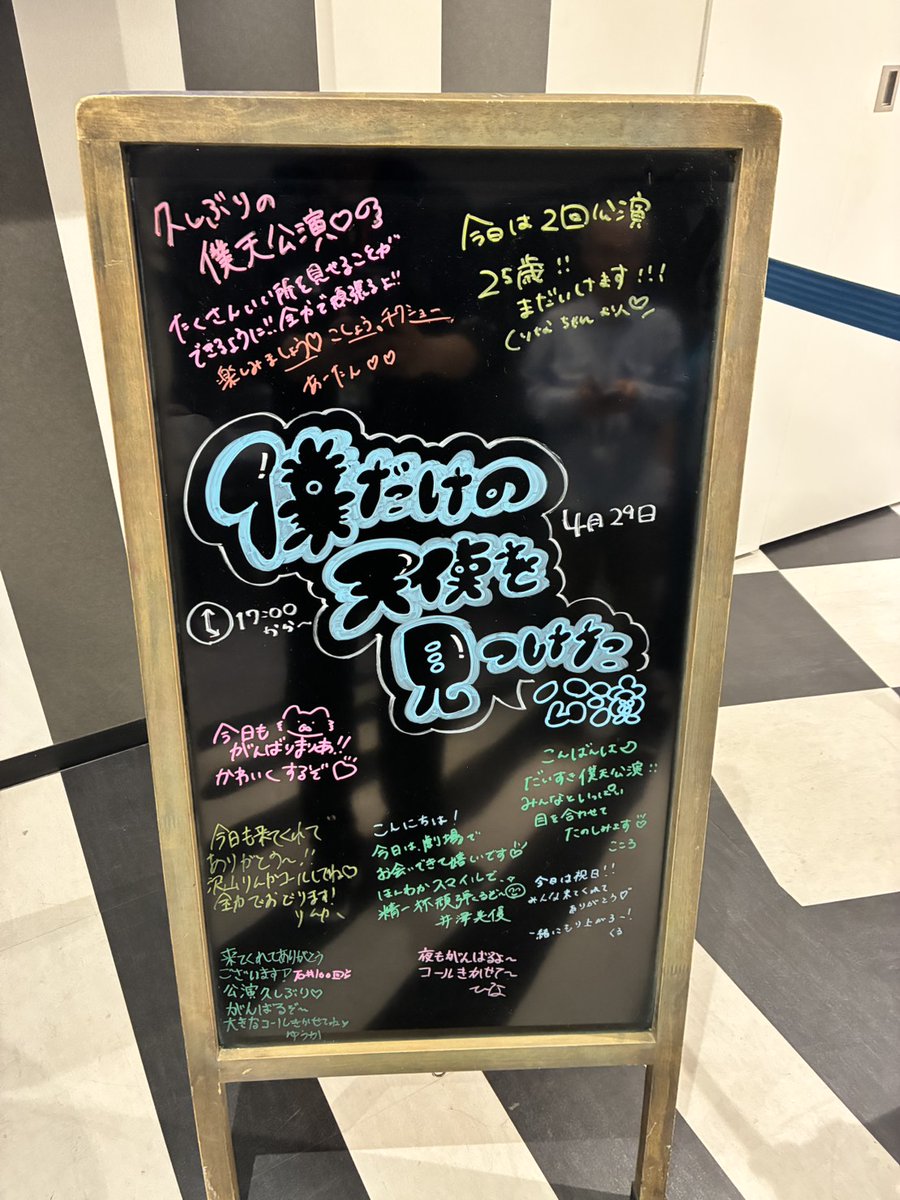 久しぶりの
僕天公演♡の
たくさんいい所を見せることが
できるように!!全力で頑張るよ!!
楽しみましょう♡こしょう。チクショー。
あーたん♡♡
今日は2回公演
25歳!!
まだいけます!!!
僕だけの
天使を
見つけた
公演
4月29日
17:00
から〜
今日も
がんばりまりあ!!
かわいくするぞ♡
こんばんは
だいすき僕天公演!!
みんなといっぱい
目を合わせて
たのしみます♡
こころ
今日も来てくれて
ありがとう〜!!
沢山りんかコールしてね♡
全力でおどります!
りんか
こんにちは!
今日は劇場で
お会いできて嬉しいです♡
ほんわかスマイルで、
精一杯頑張るぞ〜
井澤美優
今日は祝日!!
みんな来てくれて
ありがとう♡
一緒にもり上がろ〜!
くる
来てくれてありがとう
ございます♡
公演久しぶり♡
がんばるぞ〜
大きなコールきかせてね♪
ゆうか
夜もがんばるよ〜
コールきかせて〜
ひな